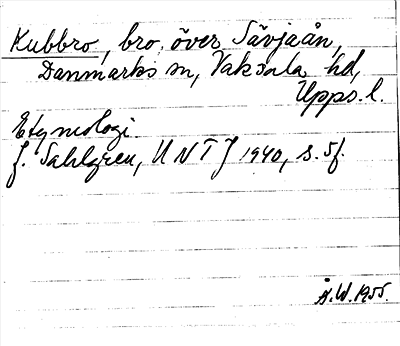 Kubbro, bro över Sävjaån,
Danmarks sn, Vaksala hd,
Upps. l.
Etymologi
J. Sahlgren, UNTJ 1940, s. 5f.
Å.W. 1955.